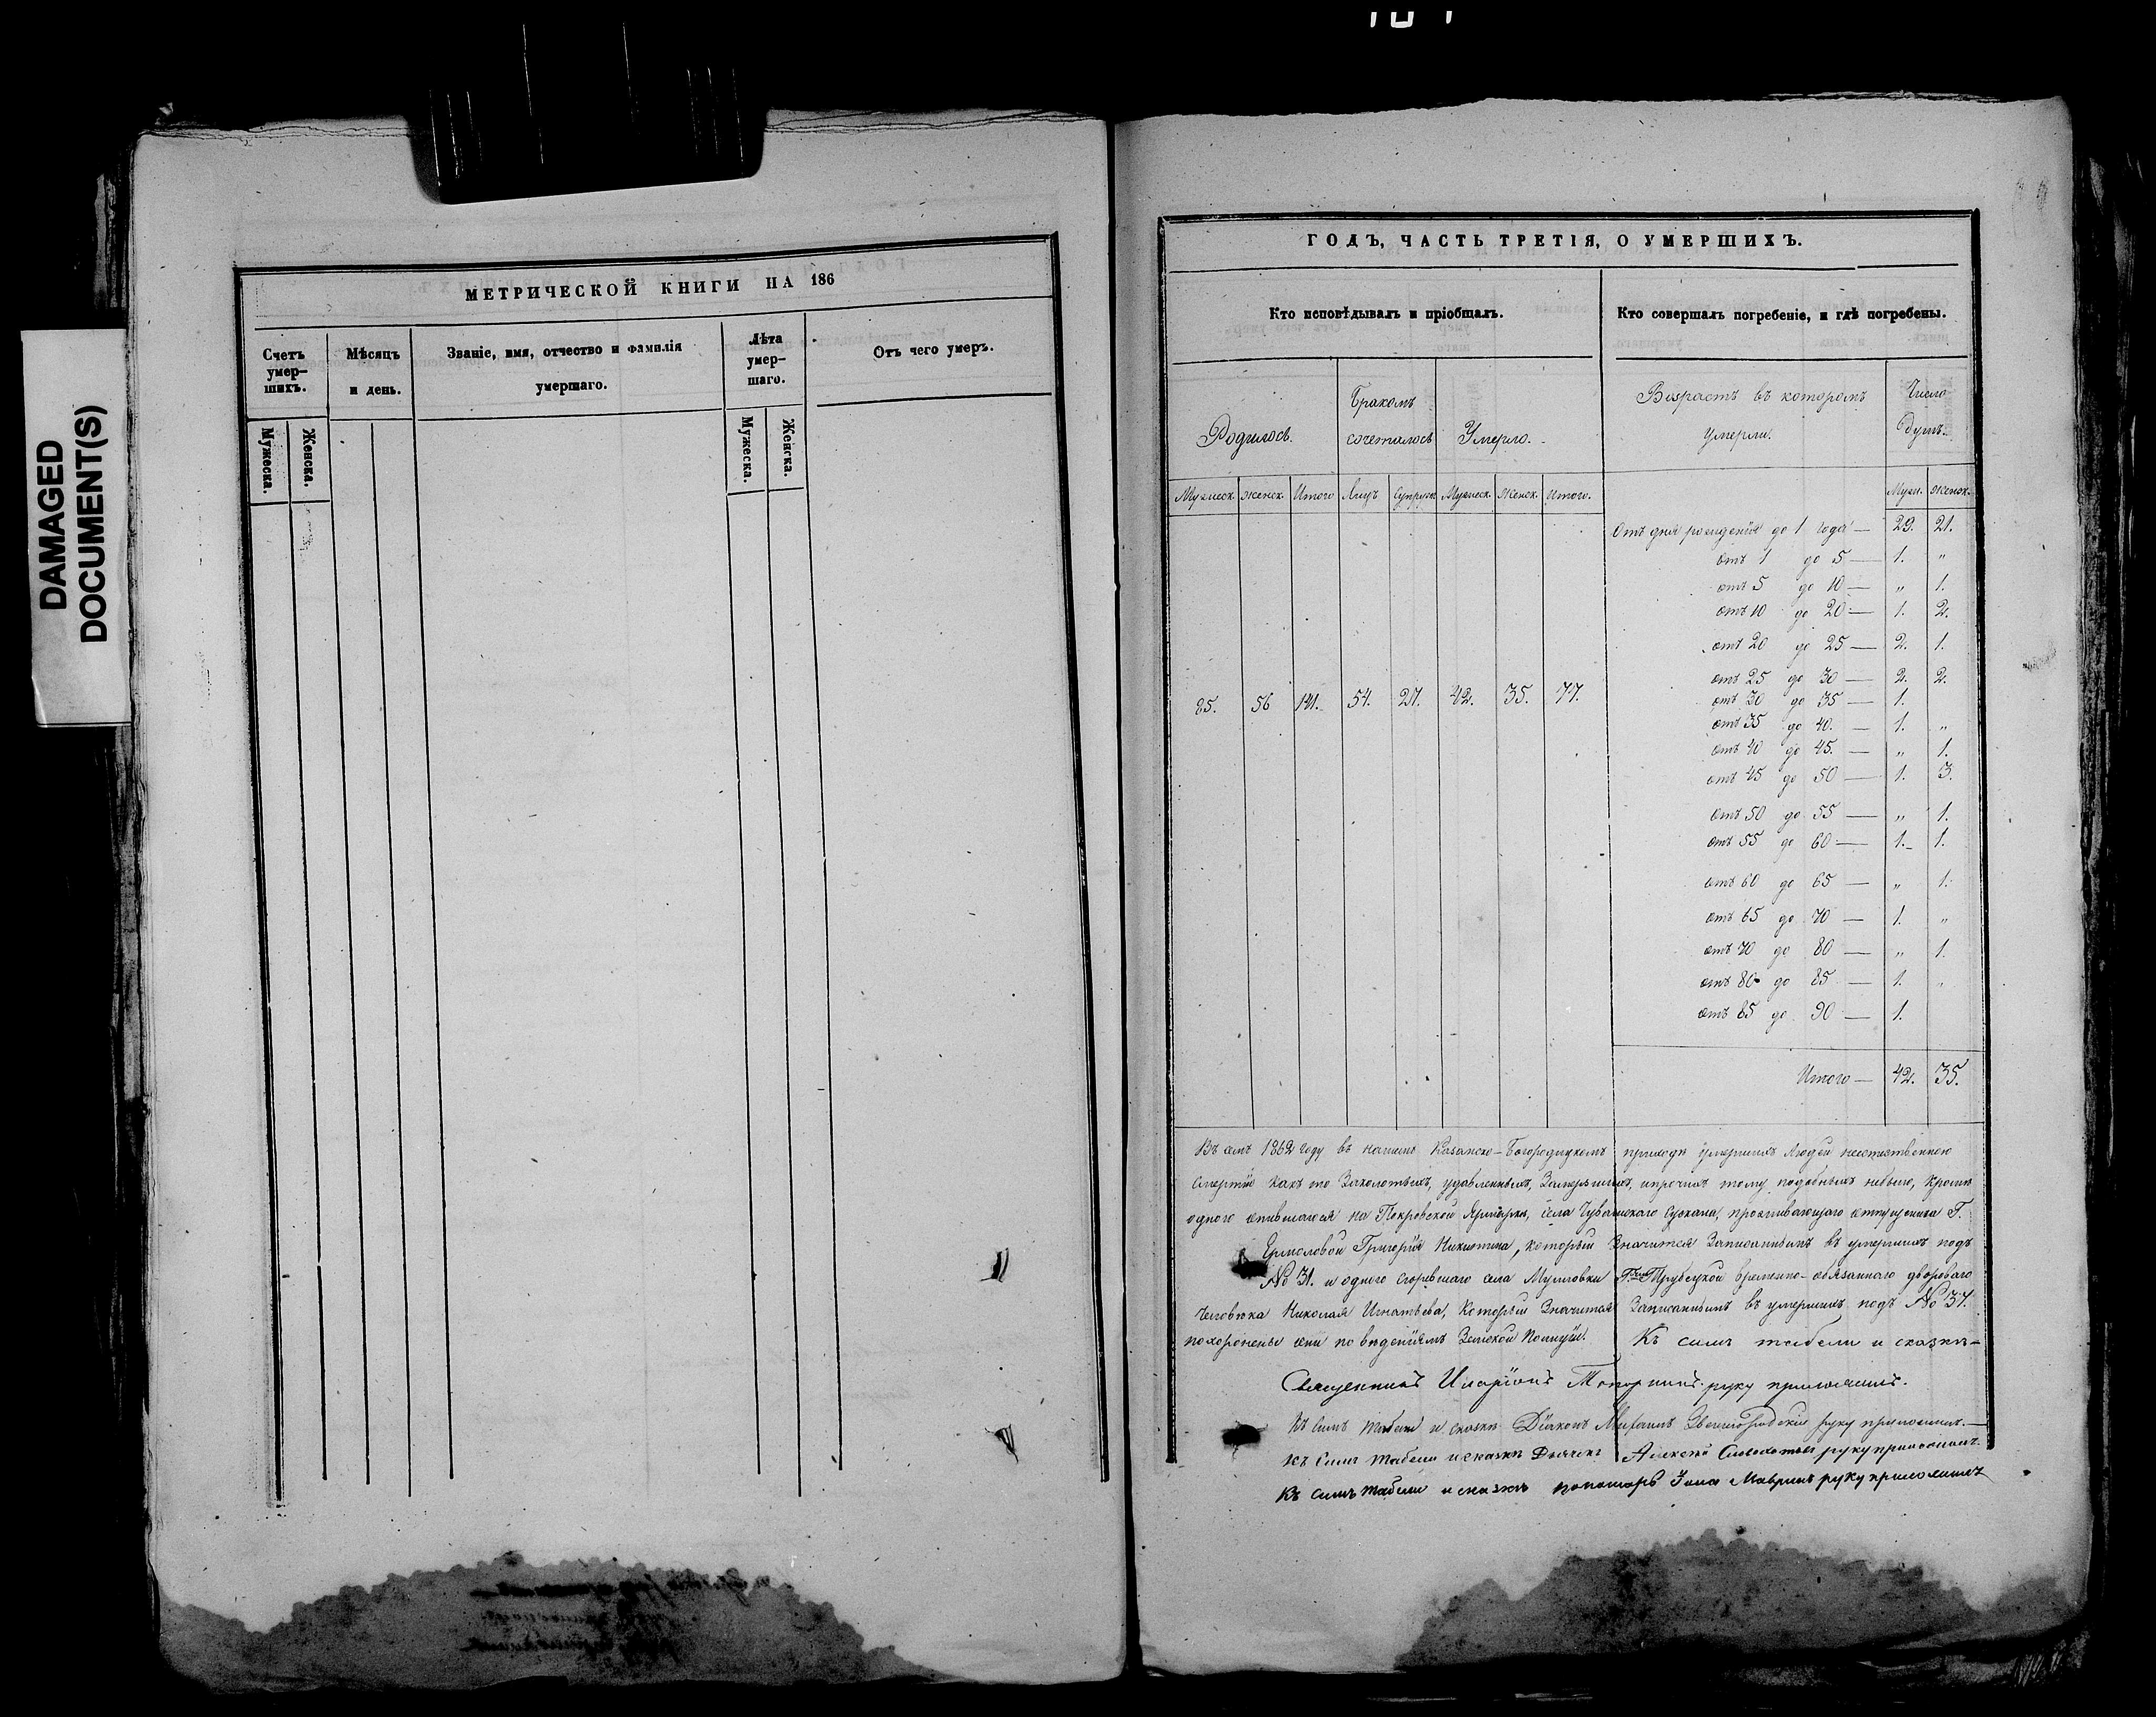 DAMAGED
DOCUMENT(S)
МЕТРИЧЕСКОЙ КНИГИ НА 186
Счетъ умер-шихъ.
Мѣсяцъ и день.
Званіе, имя, отчество и фамилія умершаго.
Лѣта умер-шаго.
Отъ чего умеръ.
Мужеска. Женска.
Мужеска. Женска.
ГОДЪ, ЧАСТЬ ТРЕТІЯ, О УМЕРШИХЪ.
Кто исповѣдывалъ и пріобщалъ.
Кто совершалъ погребеніе, и гдѣ погребены.
Родилось.
Бракомъ сочеталось
Умерло.
Возрастъ въ которомъ умерли.
Число душъ.
Мужеск. Женск. Итого Лицъ Супруж. Мужеск. Женск. Итого.
Муж. Женск.
Отъ дня рожденія до 1 года — 29. 21.
отъ 1 до 5 — 1. „
отъ 5 до 10 — „ 1.
отъ 10 до 20 — 1. 2.
отъ 20 до 25 — 2. 1.
отъ 25 до 30 — 2. 2.
отъ 30 до 35 — 1.
отъ 35 до 40. — 1. „
отъ 40 до 45. — „ 1.
отъ 45 до 50 — 1. 3.
отъ 50 до 55 — „ 1.
отъ 55 до 60 — 1. 1.
отъ 60 до 65 — „ 1.
отъ 65 до 70 — 1. „
отъ 70 до 80 — „ 1.
отъ 80 до 85 — 1. „
отъ 85 до 90 — 1.
85. 56 141. 54. 27. 42. 35. 77.
Итого — 42. 35.
1862 году въ нашемъ Казанско-Богородицкомъ приходѣ умершихъ людей неестественною
смертію какъ то Заколотыхъ, удавленныхъ, Замерзшихъ, и прочихъ тому подобныхъ небыло, кромѣ
одного опившагося на Покровской Ярмаркѣ, села Чувашскаго Сускана, проживающаго отпущеника Г.
Ермоловой Григорія Никитина, который Значится Записаннымъ въ умершихъ подъ
№ 31. и одного сгоревшаго села Мулловки Г. Трубецкой временно-обязаннаго двороваго
человѣка Николая Игнатьева, который Значится Записаннымъ въ умершихъ подъ № 37.
похоронены они по вѣденіямъ Земской Полиціи. Къ симъ табели и сказкѣ —
Священникъ Иларіонъ Топорнинъ руку приложилъ.
Къ симъ табели и сказкѣ Діаконъ Михаилъ руку приложилъ. —
Къ симъ табели и сказкѣ Дьячекъ Алексѣй руку приложилъ.
Къ симъ табели и сказкѣ пономарь Іона Мавринъ руку приложилъ